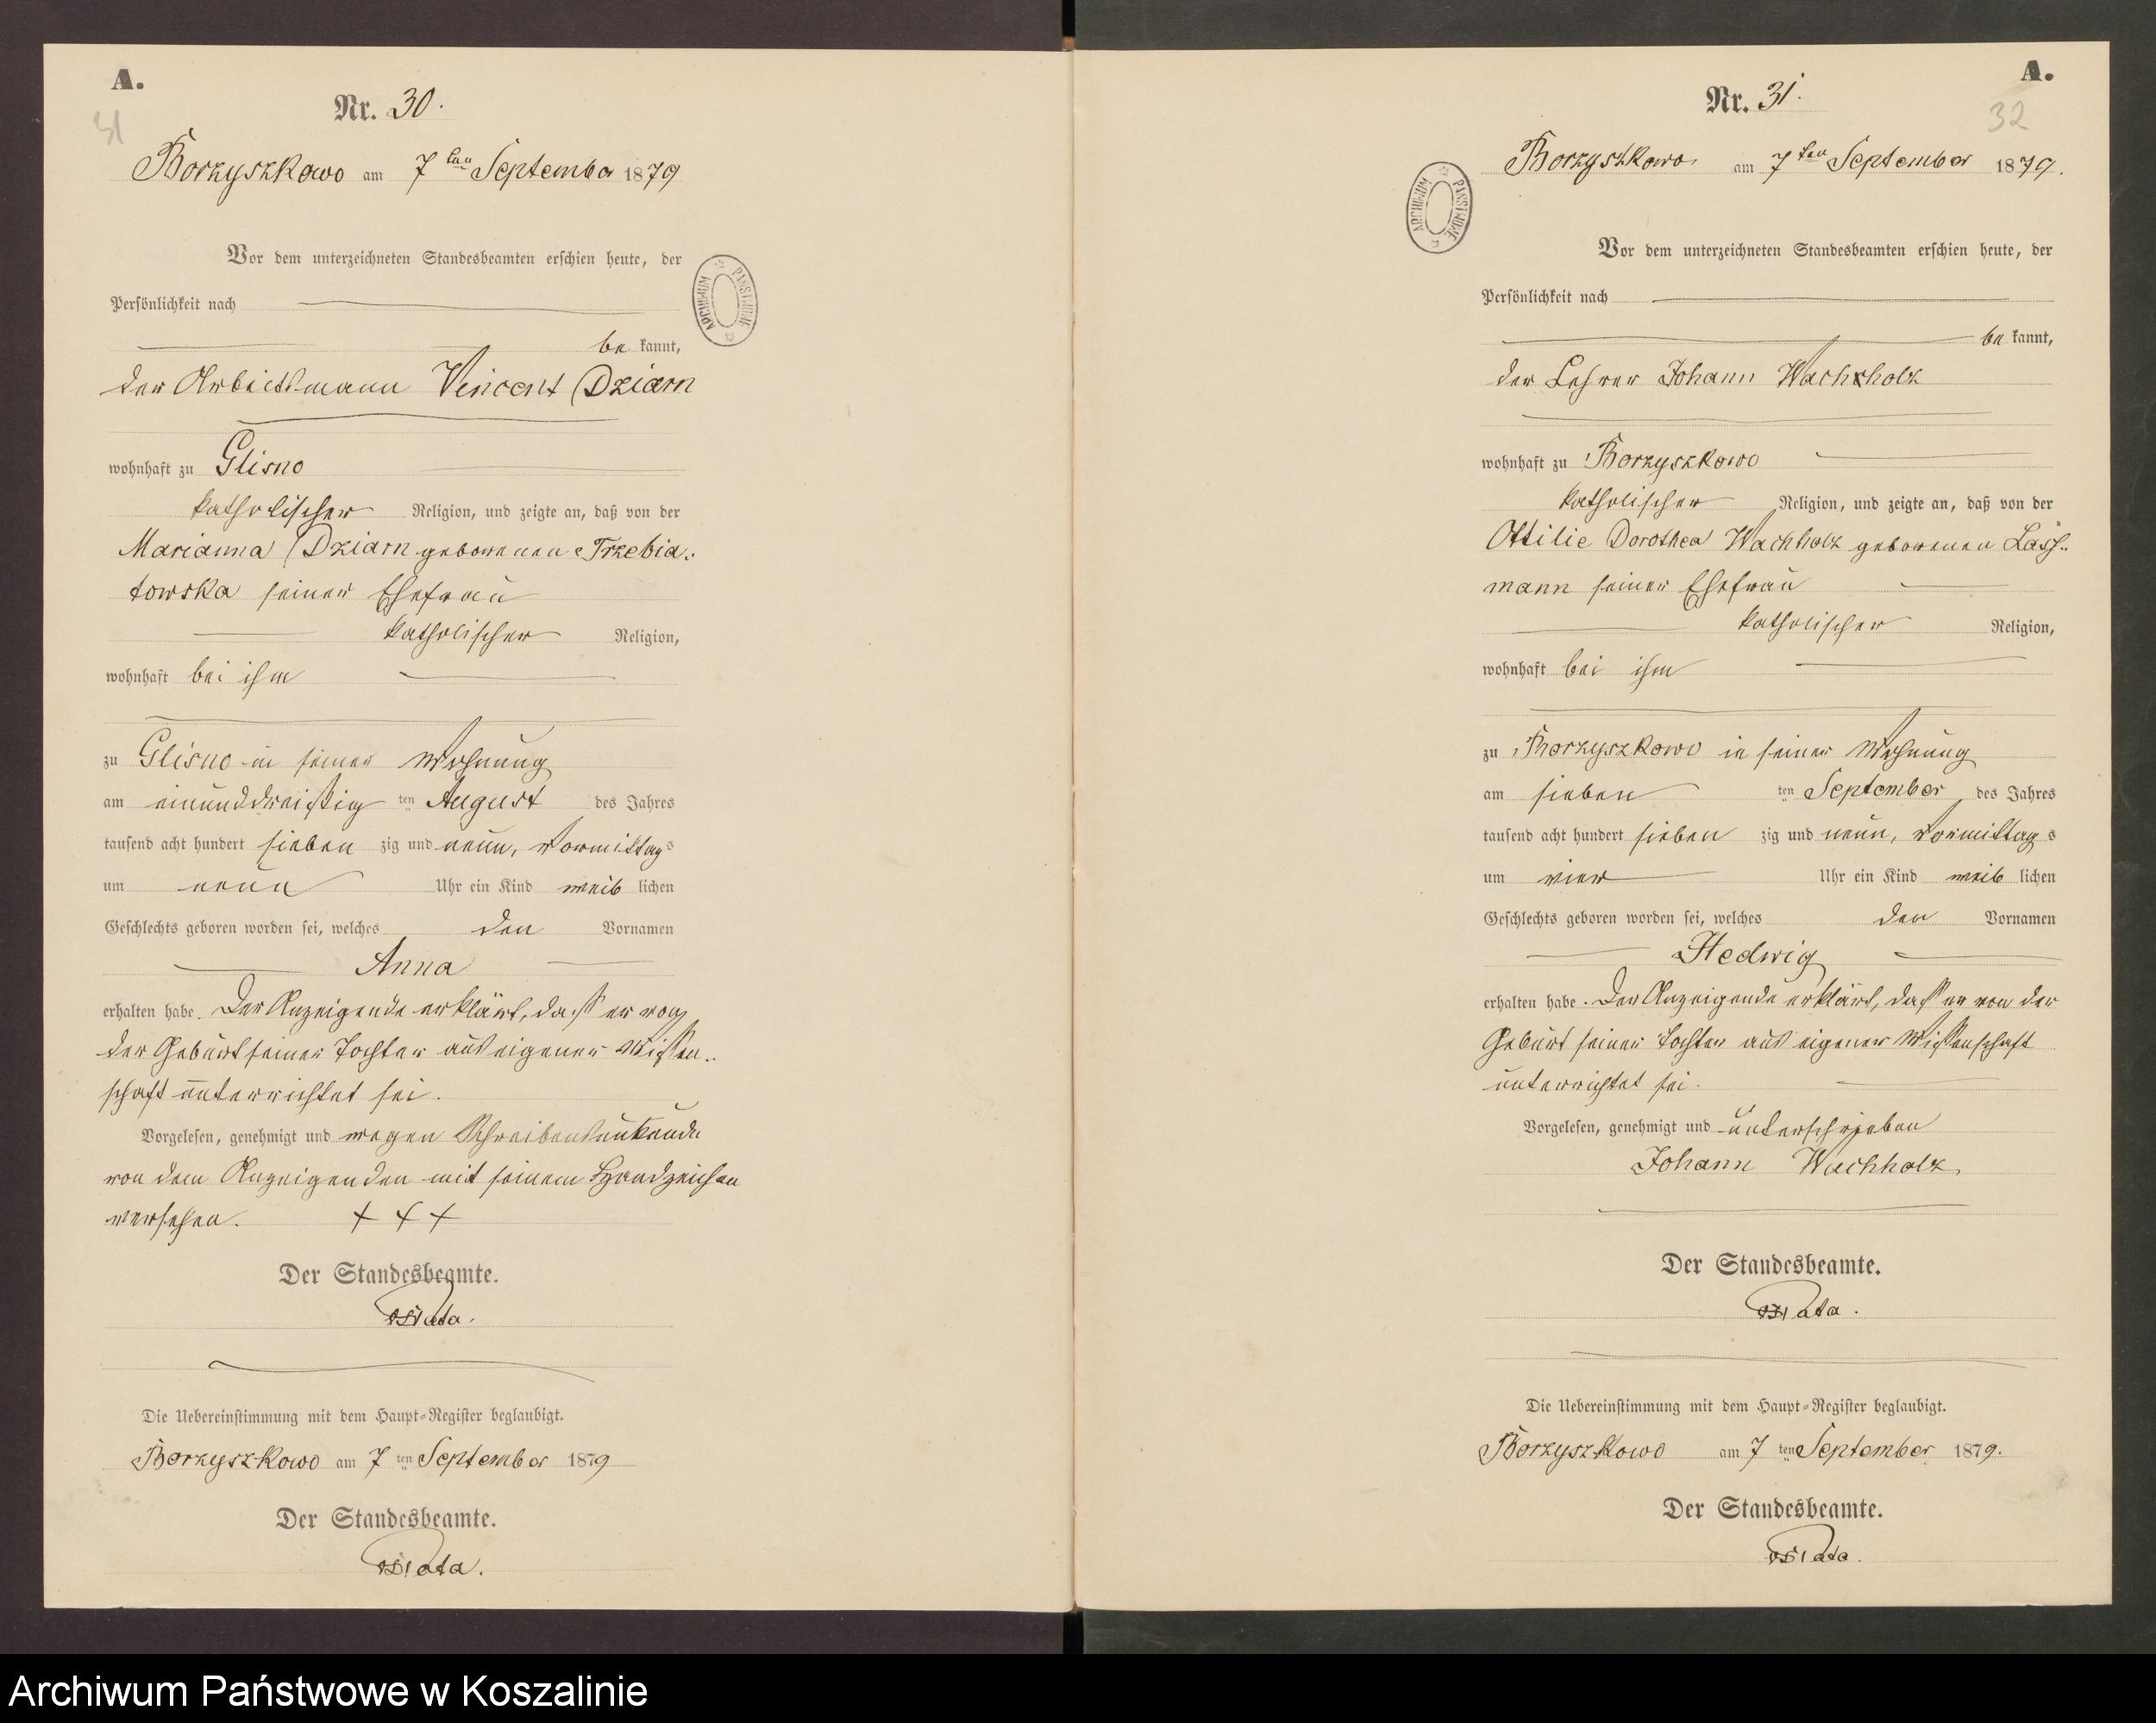 A.
Nr. 30.
31
Borzyszkowo am 7ten September 1879
Vor dem unterzeichneten Standesbeamten erschien heute, der
Persönlichkeit nach
be kannt,
der Arbeitsmann Vincent Dziarn
wohnhaft zu Glisno
katholischer Religion, und zeigte an, daß von der
Marianna Dziarn geborenen Trzebia-
towska seiner Ehefrau
katholischer Religion,
wohnhaft bei ihm
zu Glisno in seiner Wohnung
am einunddreißig ten August des Jahres
tausend acht hundert sieben zig und neun, Vormittags
um neun Uhr ein Kind weib lichen
Geschlechts geboren worden sei, welches den Vornamen
Anna
erhalten habe. Der Anzeigende erklärt, dass er von
der Geburt seiner Tochter aus eigener Wissen-
schaft unterrichtet sei.
Vorgelesen, genehmigt und wegen Schreibensunkunde
von dem Anzeigenden mit seinem Handzeichen
versehen. + + +
Der Standesbeamte.
Die Uebereinstimmung mit dem Haupt-Register beglaubigt.
Borzyszkowo am 7 ten September 1879
Der Standesbeamte.
A.
Nr. 31.
32
Borzyszkowo am 7ten September 1879.
ARCHIWUM PAŃSTWOWE
Vor dem unterzeichneten Standesbeamten erschien heute, der
Persönlichkeit nach
be kannt,
der Lehrer Johann Wachholz
wohnhaft zu Borzyszkowo
katholischer Religion, und zeigte an, daß von der
Ottilie Dorothea Wachholz geborenen Lass-
mann seiner Ehefrau
katholischer Religion,
wohnhaft bei ihm
zu Borzyszkowo in seiner Wohnung
am sieben ten September des Jahres
tausend acht hundert sieben zig und neun, Vormittags
um vier Uhr ein Kind weib lichen
Geschlechts geboren worden sei, welches den Vornamen
Hedwig
erhalten habe. Der Anzeigende erklärt, dass er von der
Geburt seiner Tochter aus eigener Wissenschaft
unterrichtet sei.
Vorgelesen, genehmigt und unterschrieben
Johann Wachholz
Der Standesbeamte.
Die Uebereinstimmung mit dem Haupt-Register beglaubigt.
Borzyszkowo am 7 ten September 1879.
Der Standesbeamte.
Archiwum Państwowe w Koszalinie